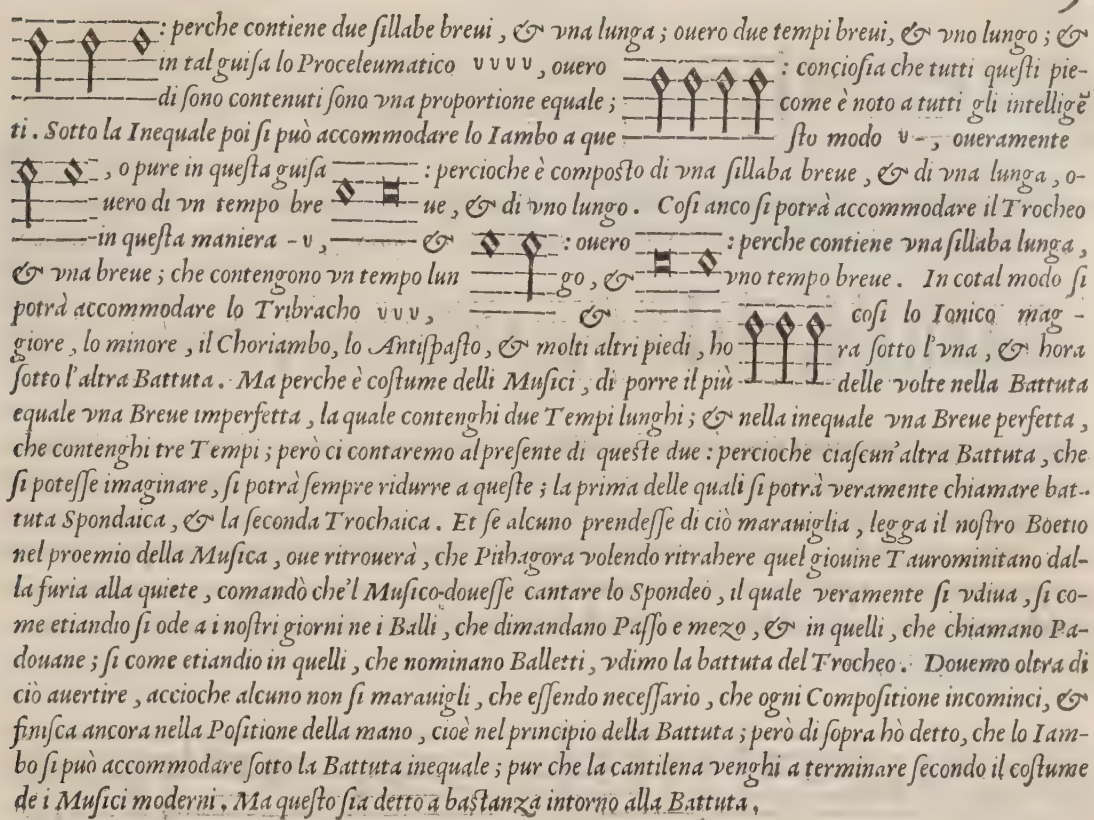 : perche contiene due ſillabe breui, & vna lunga; ouero due tempi breui, & vno lungo; &
in tal guiſa lo Proceleumatico υυυυ, ouero : concioſia che tutti queſti pie-
di ſono contenuti ſono vna proportione equale; come è noto a tutti gli intelligẽ
ti. Sotto la Inequale poi ſi può accommodare lo Iambo a que ſto modo υ-, oueramente
, o pure in queſta guiſa : percioche è compoſto di vna ſillaba breue, & di vna lunga, o-
uero di vn tempo bre ue, & di vno lungo. Coſi anco ſi potrà accommodare il Trocheo
in queſta maniera -υ, & : ouero : perche contiene vna ſillaba lunga,
& vna breue; che contengono vn tempo lun go, & vno tempo breue. In cotal modo ſi
potrà accommodare lo Tribracho υυυ, & coſi lo Ionico mag-
giore, lo minore, il Choriambo, lo Antiſpaſto, & molti altri piedi, ho ra ſotto l'vna, & hora
ſotto l'altra Battuta. Ma perche è coſtume delli Muſici, di porre il più delle volte nella Battuta
equale vna Breue imperfetta, la quale contenghi due Tempi lunghi; & nella inequale vna Breue perfetta,
che contenghi tre Tempi; però ci contaremo al preſente di queſte due: percioche ciaſcun'altra Battuta, che
ſi poteſſe imaginare, ſi potrà ſempre ridurre a queſte; la prima delle quali ſi potrà veramente chiamare bat-
tuta Spondaica, & la ſeconda Trochaica. Et ſe alcuno prendeſſe di ciò marauiglia, legga il noſtro Boetio
nel proemio della Muſica, oue ritrouerà, che Pithagora volendo ritrahere quel giouine Taurominitano dal-
la furia alla quiete, comandò che'l Muſico doueſſe cantare lo Spondeo, il quale veramente ſi vdiua, ſi co-
me etiandio ſi ode a i noſtri giorni ne i Balli, che dimandano Paſſo e mezo, & in quelli, che chiamano Pa-
douane; ſi come etiandio in quelli, che nominano Balletti, vdimo la battuta del Trocheo. Douemo oltra di
ciò auertire, accioche alcuno non ſi marauigli, che eſſendo neceſſario, che ogni Compoſitione incominci, &
finiſca ancora nella Poſitione della mano, cioè nel principio della Battuta; però di ſopra hò detto, che lo Iam-
bo ſi può accommodare ſotto la Battuta inequale; pur che la cantilena venghi a terminare ſecondo il coſtume
de i Muſici moderni. Ma queſto ſia detto a baſtanza intorno alla Battuta.